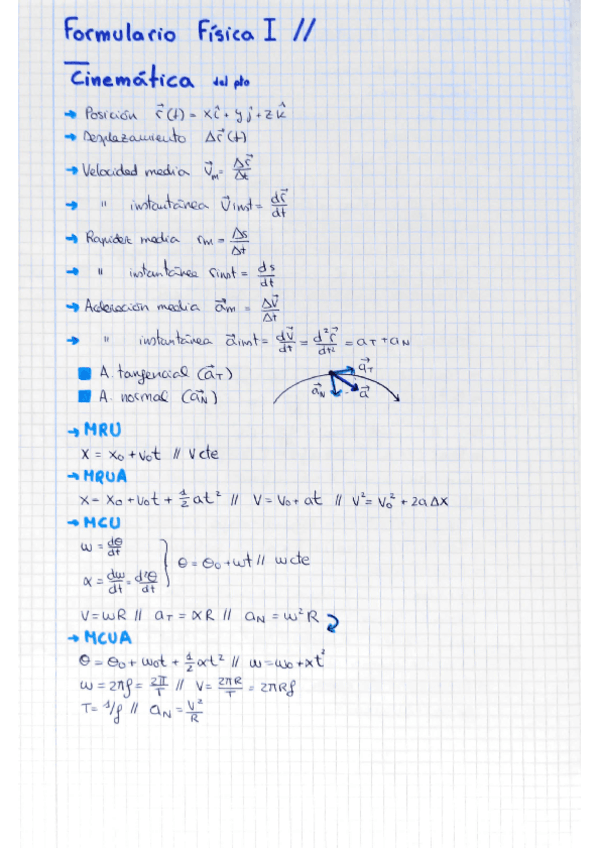 Formulario Física I //
Cinemática del pto
→ Posición r⃗(t) = xî + yĵ + zk̂
→ Desplazamiento Δr⃗(t)
→ Velocidad media v⃗m = Δr⃗/Δt
→ " instantánea v⃗inst = dr⃗/dt
→ Rapidez media rm = Δs/Δt
→ " instantánea rinst = ds/dt
→ Aceleración media a⃗m = Δv⃗/Δt
→ " instantánea a⃗inst = dv⃗/dt = d²r⃗/dt² = aT + aN
A. tangencial (a⃗T)
A. normal (a⃗N)
a⃗T
a⃗N a⃗
→ MRU
x = x0 + v0t // v cte
→ MRUA
x = x0 + v0t + 1/2 at² // v = v0 + at // v² = v0² + 2aΔx
→ MCU
ω = dθ/dt
θ = θ0 + ωt // ω cte
α = dω/dt = d²θ/dt
v = ωR // aT = αR // aN = ω²R
→ MCUA
θ = θ0 + ω0t + 1/2 αt² // ω = ω0 + αt²
ω = 2πf = 2π/T // v = 2πR/T = 2πRf
T = 1/f // aN = v²/R